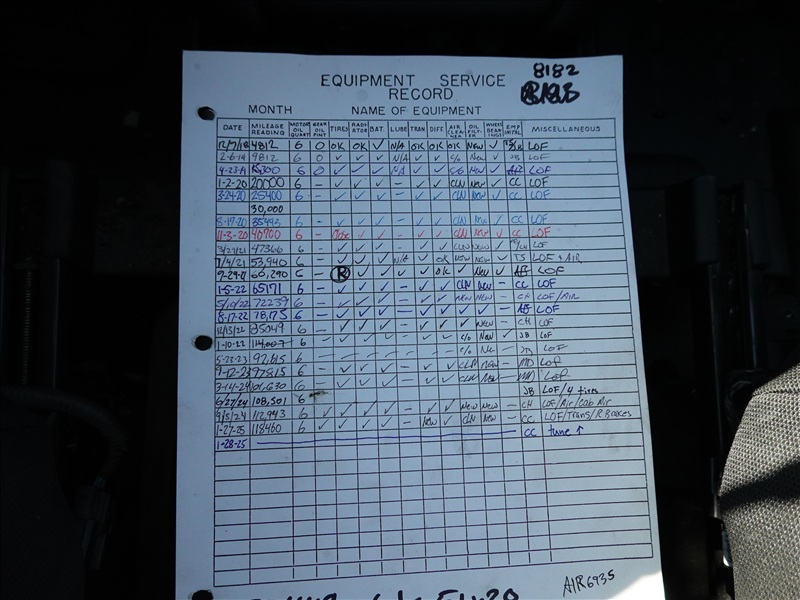 8182
EQUIPMENT SERVICE
RECORD
MONTH NAME OF EQUIPMENT
DATE MILEAGE READING MOTOR OIL QUART GEAR OIL PINT TIRES RADIATOR BAT. LUBE TRAN DIFF. AIR CLEANER OIL FILTER WHEEL BEARINGS EMP INITIAL MISCELLANEOUS
12/7/18 4812 6 0 OK OK ✓ N/A OK OK OK New ✓ LOF
2-6-19 9812 6 0 ✓ ✓ ✓ N/A ✓ ✓ c/o New ✓ LOF
4-23-19 6 0 ✓ ✓ ✓ N/A ✓ ✓ c/o New ✓ LOF
1-2-20 20000 6 - ✓ ✓ ✓ - ✓ ✓ CLN NEW ✓ CC LOF
3-24-20 25400 6 - ✓ ✓ ✓ - ✓ ✓ CLN NEW ✓ CC LOF
30,000
8-17-20 35493 6 - ✓ ✓ ✓ - ✓ ✓ CLN New ✓ CC LOF
11-3-20 40700 6 - ✓ ✓ - ✓ ✓ CLN NEW ✓ CC LOF
47366 6 - ✓ ✓ ✓ - ✓ ✓ CLN NEW ✓ LOF
7/4/21 53,940 6 - ✓ ✓ ✓ N/A ✓ OK NEW NEW ✓ TS LOF & AIR
9-29-21 60,290 6 - R ✓ ✓ ✓ ✓ OK ✓ New ✓ LOF
1-5-22 65171 6 - ✓ ✓ ✓ - ✓ ✓ CLN new - CC LOF
5/10/22 72239 6 - ✓ ✓ ✓ - ✓ ✓ NEW NEW - CH LOF/AIR
8-17-22 78,175 6 - ✓ ✓ ✓ - ✓ ✓ ✓ ✓ - LOF
12/13/22 85049 6 - ✓ ✓ ✓ - ✓ ✓ ✓ NEW - CH LOF
1-10-22 6 - ✓ ✓ ✓ - ✓ ✓ c/o New ✓ JB LOF
5-23-23 92,615 6 c/o - LOF
9-12-23 97815 6 - ✓ ✓ ✓ - ✓ ✓ CLN New - MD LOF
3-14-24 101,630 6 - ✓ ✓ ✓ - ✓ ✓ CLN New - LOF
6/27/24 108,501 6 JB LOF/4 tires
9/5/24 112,943 6 ✓ ✓ ✓ ✓ - ✓ ✓ New New - CH LOF/Air/Cab Air
1-27-25 118460 6 ✓ ✓ ✓ ✓ - New ✓ CLN New - CC LOF/Trans/R Brakes
1-28-25 CC tune ↑
AIR6935